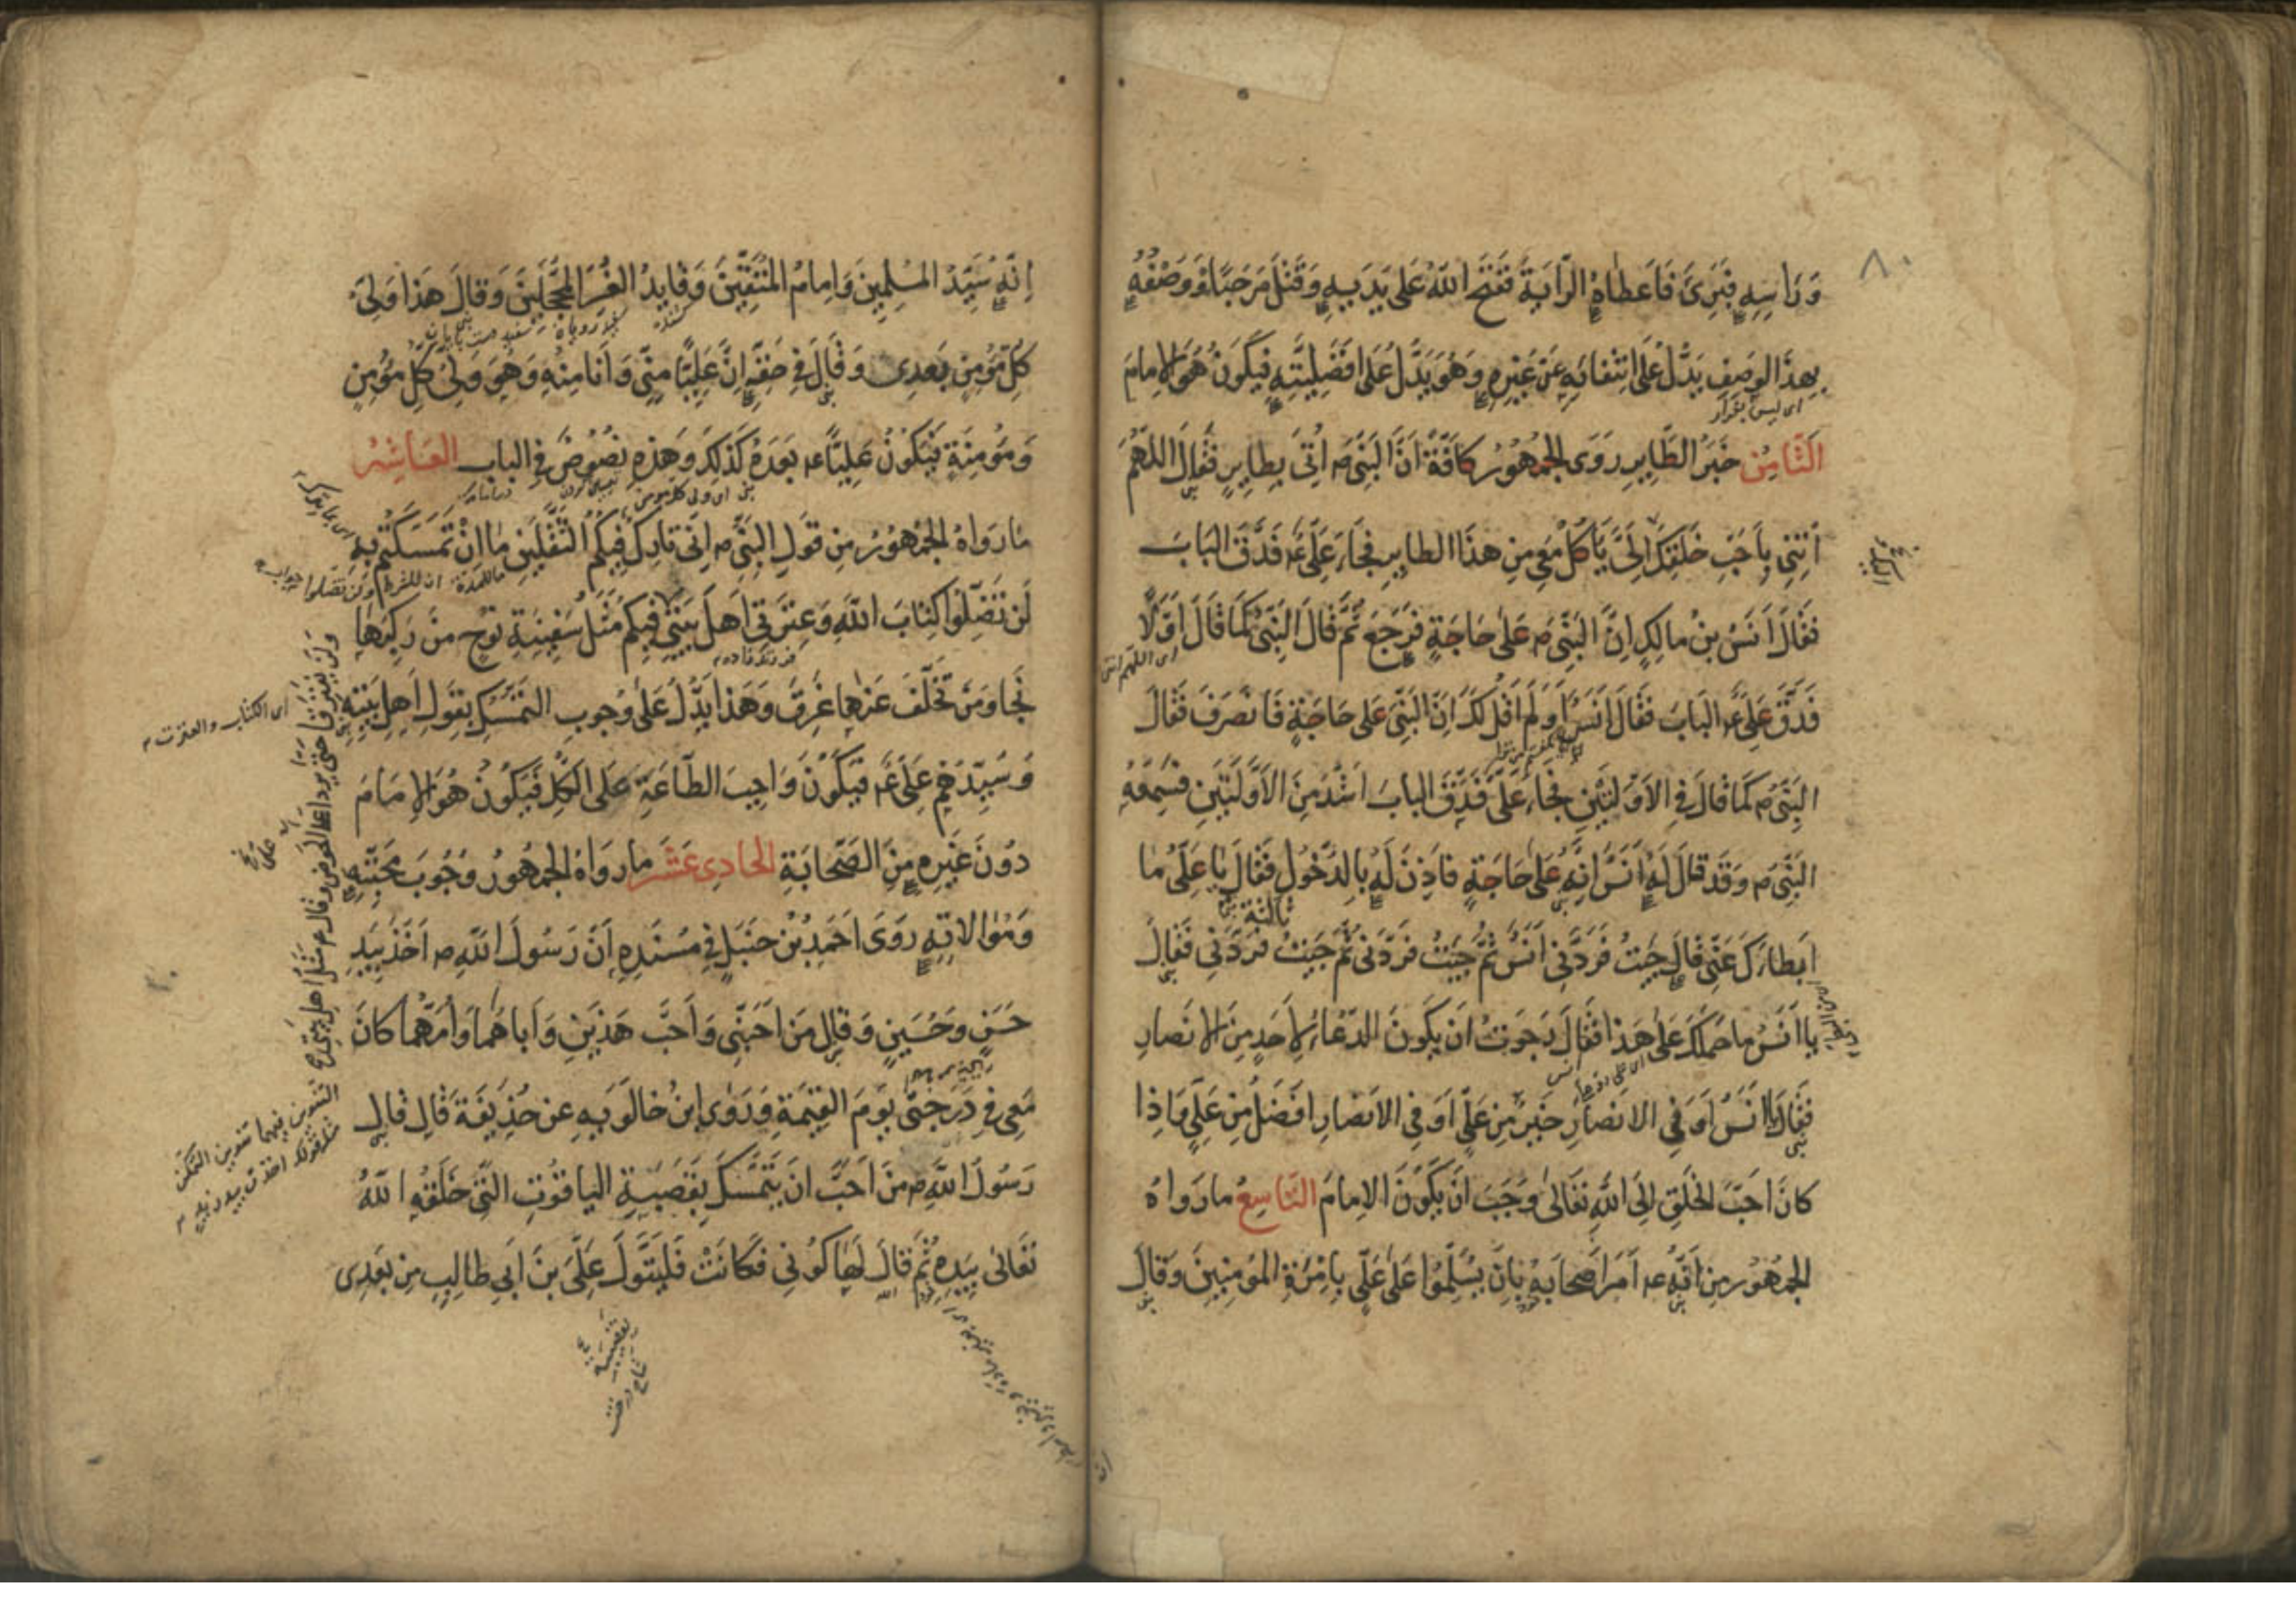 ٨٠
وَرَاسِهِ فَبَرِئَ فَاَعطَاهُ الرَّايَةَ فَفَتَحَ اللّٰهُ عَلَى يَدَيهِ وَقَتَلَ مَرحَبًا وَوَصفُهُ
بِهذَا الوَصفِ يَدُلُّ عَلَى انتِفَائِهِ عَن غَيرِهِ وَهُوَ يَدُلُّ عَلَى اَفضَلِيَّتِهِ فَيَكُونُ هُوَ الاِمَامَ
اى ليس بفرار
الثَّامِنُ خَبَرُ الطَّايِرِ رَوَى الجُمهُورُ كَافَّةً اَنَّ النَّبِىَّ ص اُتِىَ بِطَايِرٍ فَقَالَ اللّهُمَّ
اِئتِنِى بِاَحَبِّ خَلقِكَ اِلَىَّ يَاكُلُ مَعِى مِن هذَا الطايِرِ فَجَاءَ عَلِىٌّ ع فَدَقَّ البَابَ
فَقَالَ اَنَسُ بنُ مالِكٍ اِنَّ النَّبِىَّ ص عَلَى حَاجَةٍ فَرَجَعَ ثُمَّ قَالَ النَّبِىُّ كَمَا قَالَ اَوَّلًا
اى اللهم ائتنى
فَدَقَّ عَلِىٌّ ع البَابَ فَقَالَ اَنَسُ اَوَلَم اَقُل لَكَ اِنَّ النَّبِىَّ عَلَى حَاجَةٍ فَانصَرَفَ فَقَالَ
النَّبِىُّ ص كَمَا قَالَ فِى الاَوَّلَتَينِ فَجَاءَ عَلِىٌّ فَدَقَّ البابَ اَشَدَّ مِنَ الاَوَّلَتَينِ فَسَمِعَهُ
النَّبِىُّ ص وَقَد قَالَ لَهُ اَنَسُ اِنَّهُ عَلَى حَاجَةٍ فَاَذِنَ لَهُ بِالدُّخُولِ فَقَالَ يَا عَلِىُّ مَا
ثالثة
اَبطَاَكَ عَنِّى قَالَ جِئتُ فَرَدَّنِى اَنَسُ ثُمَّ جِئتُ فَرَدَّنِى ثُمَّ جِئتُ فَرَدَّنِى فَقَالَ
يا اَنَسُ ما حَمَلَكَ عَلَى هذَا فَقَالَ رَجَوتُ اَن يَكُونَ الدُّعَاءُ لِاَحَدٍ مِنَ الاَنصَارِ
فَقَالَ يَا اَنَسُ اَوَ فِى الاَنصَارِ خَيرٌ مِن عَلِىٍّ اَوَ فِى الاَنصَارِ اَفضَلُ مِن عَلِىٍّ وَاِذَا
كَانَ اَحَبَّ الخَلقِ اِلَى اللّٰهِ تَعَالى وَجَبَ اَن يَكُونَ الاِمَامَ التَّاسِعُ مَا رَوَاهُ
الجُمهُور مِن اَنَّهُ ع اَمَرَ اَصحَابَهُ بِاَن يُسَلِّمُوا عَلَى عَلِىٍّ بِاِمرَةِ المُؤمِنِينَ وَقَالَ
اِنَّهُ سَيِّدُ المُسلِمِينَ وَاِمَامُ المُتَّقِينَ وَقَايِدُ الغُرِّ المُحَجَّلِينَ وَقَالَ هَذَا وَلِىُّ
كُلِّ مُؤمِنٍ بَعدِى وَقَالَ فِى حَقِّهِ اِنَّ عَلِيًّا مِنِّى وَاَنَا مِنهُ وَهُوَ وَلِىُّ كُلِّ مُؤمِنٍ
وَمُؤمِنَةٍ فَيَكُونُ عَلِيًّا ع بَعدَهُ كَذلِكَ وَهَذِهِ نُصُوصٌ فِى الباب العَاشِرُ
مَا رَوَاهُ الجُمهُورُ مِن قَولِ النَّبِىِّ ص اِنِّى تَارِكٌ فِيكُمُ الثَّقَلَينِ مَا اِن تَمَسَّكتُم بِهِ
لَن تَضِلُّوا كِتَابَ اللّٰهِ وَعِترَتِى اَهلَ بَيتِى فِيكُم مَثَلُ سَفِينَةِ نُوحٍ مَن رَكِبَهَا
نَجَا وَمَن تَخَلَّفَ عَنهَا غَرِقَ وَهَذَا يَدُلُّ عَلَى وُجُوبِ التَّمَسُّكِ بِقَولِ اَهلِ بَيتِهِ
وَسَيِّدُهُم عَلِىٌّ ع فَيَكُونُ وَاجِبَ الطَّاعَةِ عَلَى الكُلِّ فَيَكُونُ هُوَ الاِمَامَ
دُونَ غَيرِهِ مِنَ الصَّحَابَةِ الحَادِى عَشَر مَا رَوَاهُ الجُمهُورُ وُجُوبَ مَحَبَّتِهِ
وَمُوَالَاتِهِ رَوَى اَحمَدُ بنُ حَنبَلٍ فِى مُسنَدِهِ اَنَّ رَسُولَ اللّٰهِ ص اَخَذَ بِيَدِ
حَسَنٍ وَحُسَينٍ وَقَالَ مَن اَحَبَّنِى وَاَحَبَّ هَذَينِ وَاَبَاهُمَا وَاُمَّهُمَا كَانَ
مَعِى فِى دَرَجَتِى يَومَ القِيٰمَةِ وَرَوَى ابنُ خَالَوَيهِ عَن حُذَيفَةَ قَالَ قَالَ
رَسُولُ اللّٰهِ ص مَن اَحَبَّ اَن يَتَمَسَّكَ بِقَصَبَةِ اليَاقُوتِ الَّتِى خَلَقَهَا اللّٰهُ
تَعَالى بِيَدِهِ ثُمَّ قَالَ لَهَا كُونِى فَكَانَت فَليَتَوَلَّ عَلِىَّ بنَ اَبِى طَالِبٍ مِن بَعدِى
وَلَن يَفتَرِقَا حَتّى يَرِدَا عَلَىَّ الحَوضَ وَقَالَ ع مَثَلُ اَهلِ بَيتِى
اى الكتاب والعترت